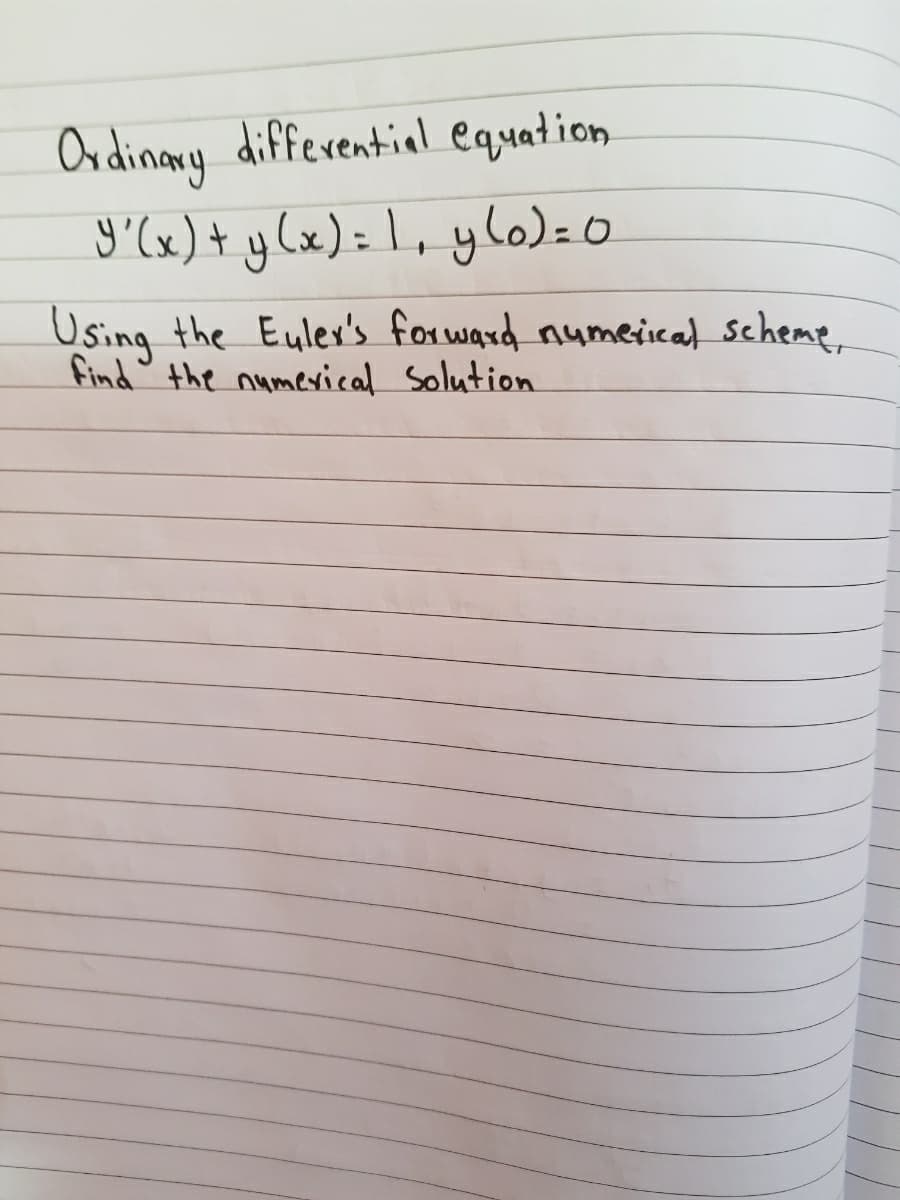 Ordinary differential equation
y'(x) + y(x) = 1, y(0) = 0
Using the Euler's forward numerical scheme,
find the numerical solution